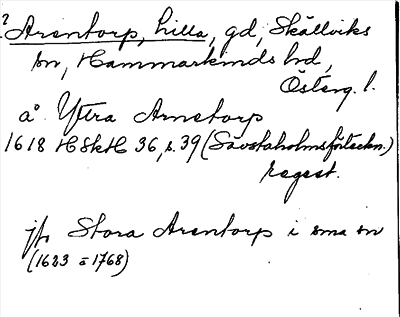 ? Arentorp, Lilla, gd, Skällviks
sn, Hammarkinds hd,
Österg. l.
å Yttra Arnetorp
1618 HSkH 36, s. 39 (Sävstaholmsförteckn.)
regest.
jfr Stora Arentorp i sma sn
(1623 – 1768)